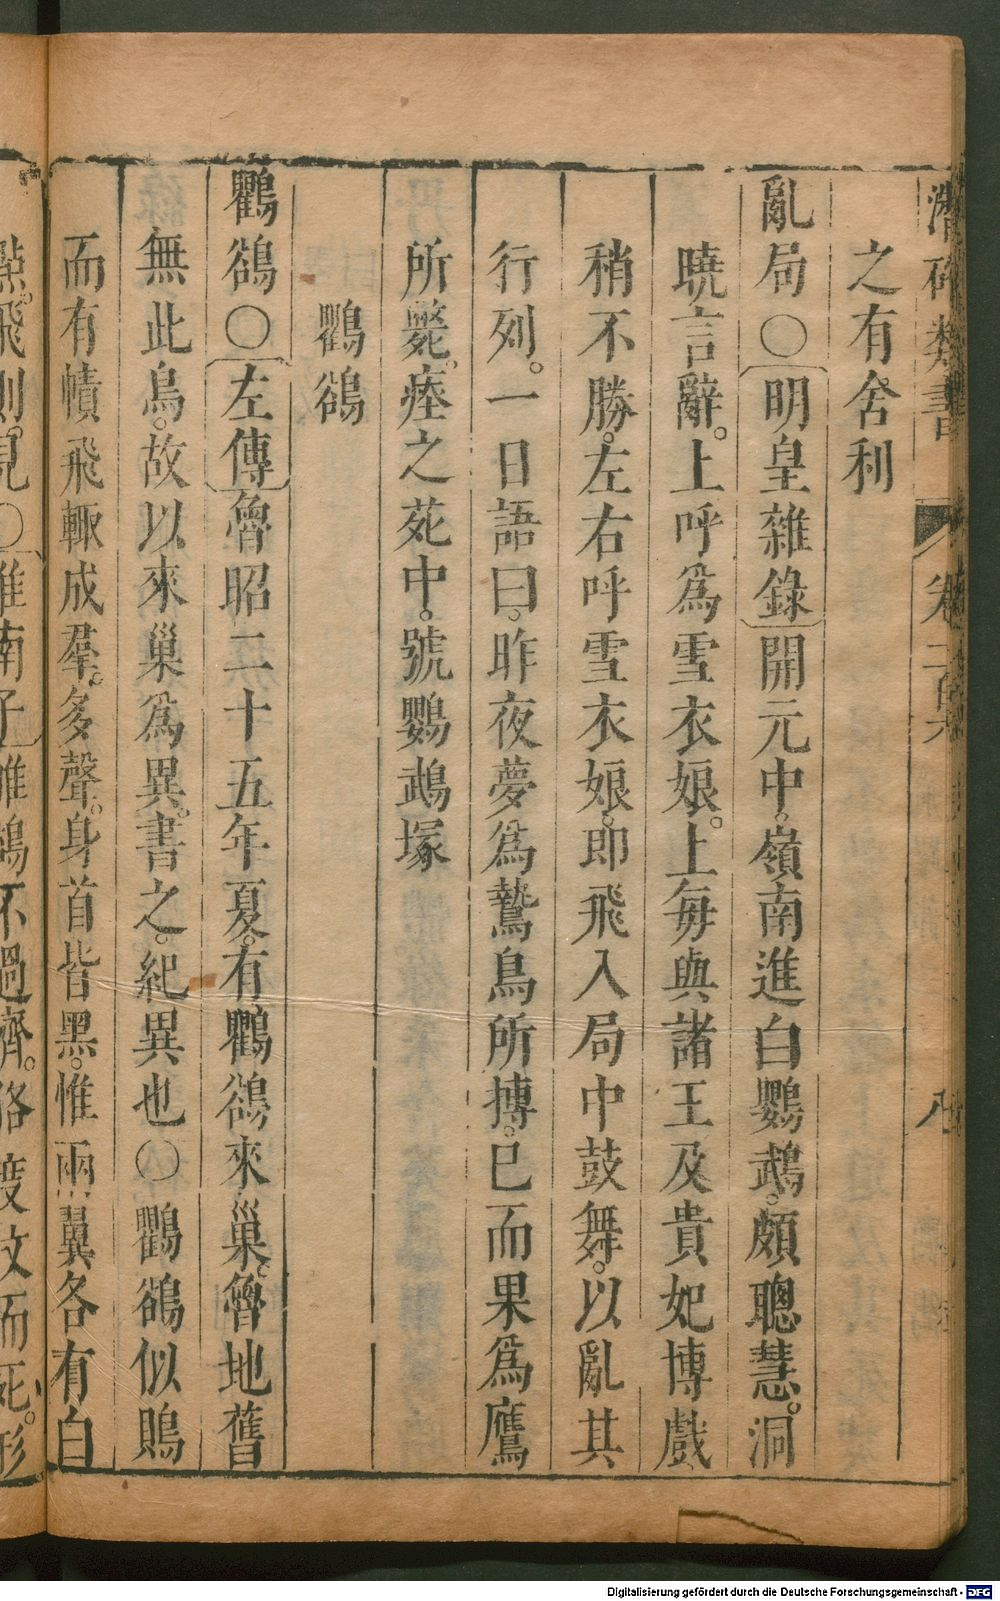 潛確類書
卷二百
之有舍利
亂局○明皇雜錄開元中。嶺南進白鸚鵡。頗聰慧。洞
曉言辭。上呼爲雪衣娘。上每與諸王及貴妃博戲
稍不勝。左右呼雪衣娘。即飛入局中鼓舞。以亂其
行列。一日語曰。昨夜夢爲鷙鳥所搏。已而果爲鷹
所斃。瘞之苑中。號鸚鵡塚
鸜鵒
鸜鵒○左傳魯昭二十五年夏。有鸜鵒來巢。魯地舊
無此鳥。故以來巢爲異。書之。紀異也○鸜鵒似鵙
而有幘飛輙成羣。多聲。身首皆黑。惟兩翼各有白
點。飛則。見○淮南子鸜鵒不過濟。狢渡汶而死。形
Digitalisierung gefördert durch die Deutsche Forschungsgemeinschaft - DFG